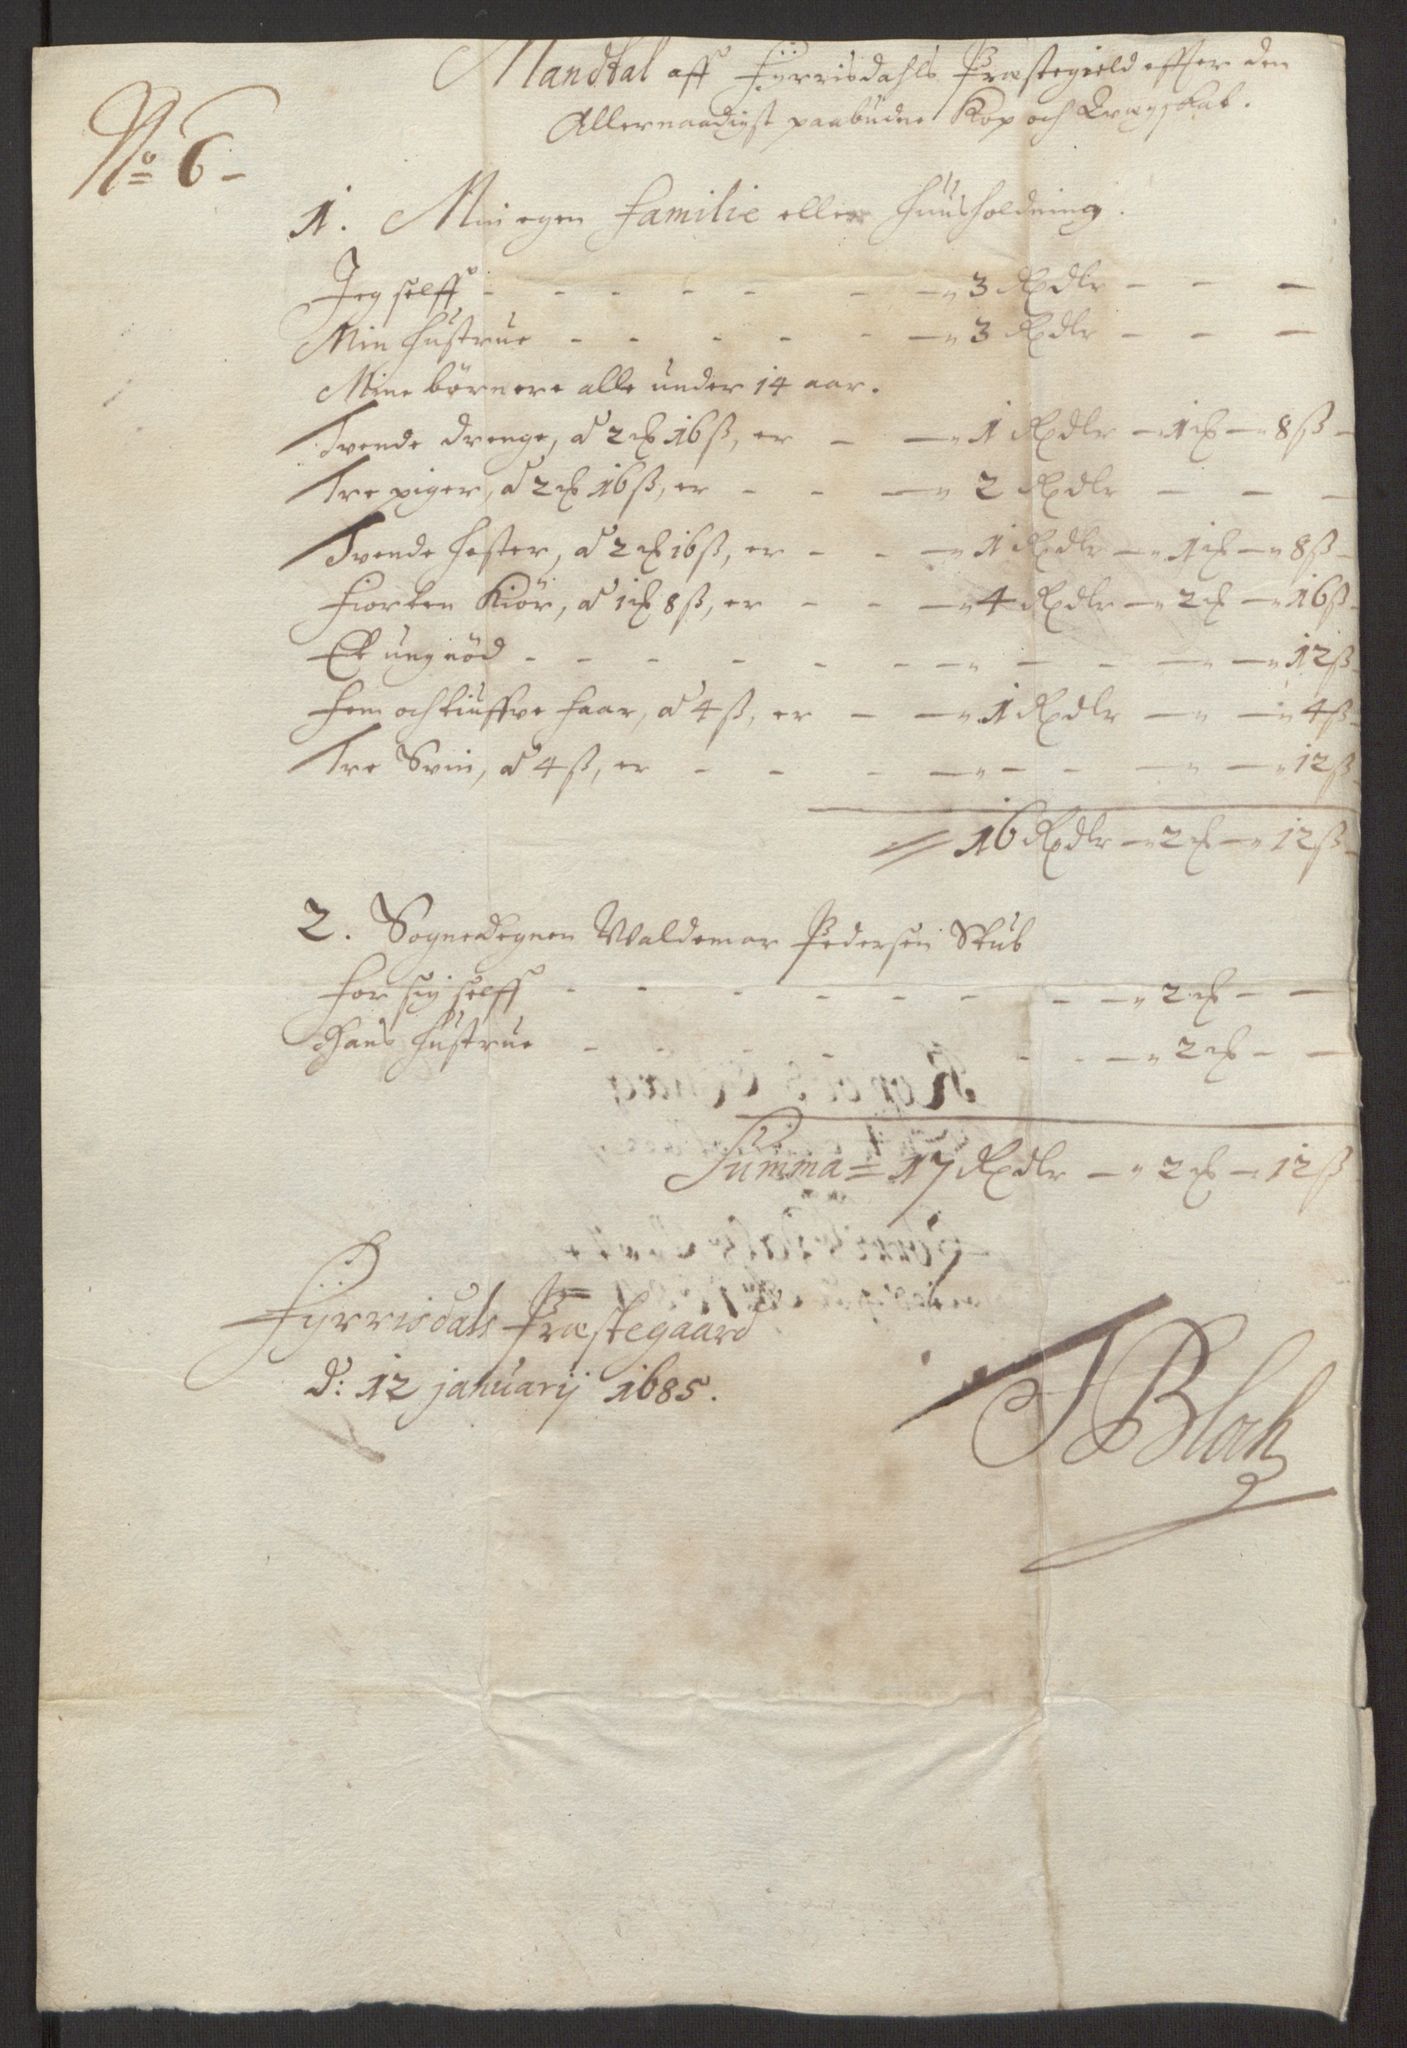 No 6 -
Mandtal aff Fÿrrisdahls Præstegield effter den
Allernaadigst paabudne Kop och Qvægskat.
1. Min egen familie eller huusholdning.
Jeg selff - - - - - - - 3 Rdlr - - -
Min hustrue - - - - - - 3 Rdlr - - -
Mine børn ere alle under 14 aar.
Tvende drenge, a 2 ℳ 16 ß, er - - 1 Rdlr - 1 ℳ - 8 ß -
Tre piger, a 2 ℳ 16 ß, er - - - 2 Rdlr - - -
Tvende hester, a 2 ℳ 16 ß, er - - - 1 Rdlr - 1 ℳ - 8 ß -
Fiorten Kiör, a 1 ℳ 8 ß, er - - - 4 Rdlr - 2 ℳ - 16 ß -
Et ungnöd - - - - - - - - - - 12 ß -
Fem och tiuffve faar, a 4 ß, er - - 1 Rdlr - - 4 ß -
Tre Svin, a 4 ß, er - - - - - - - - 12 ß
16 Rdlr - 2 ℳ - 12 ß -
2. Sognedegnen Waldemar Pedersen Skub
For sig selff - - - - - - - - 2 ℳ - -
Hans hustrue - - - - - - - 2 ℳ - -
Summa = 17 Rdlr - 2 ℳ - 12 ß
Fÿrrisdals Præstegaard
d: 12 januarij 1685.
T Bloch